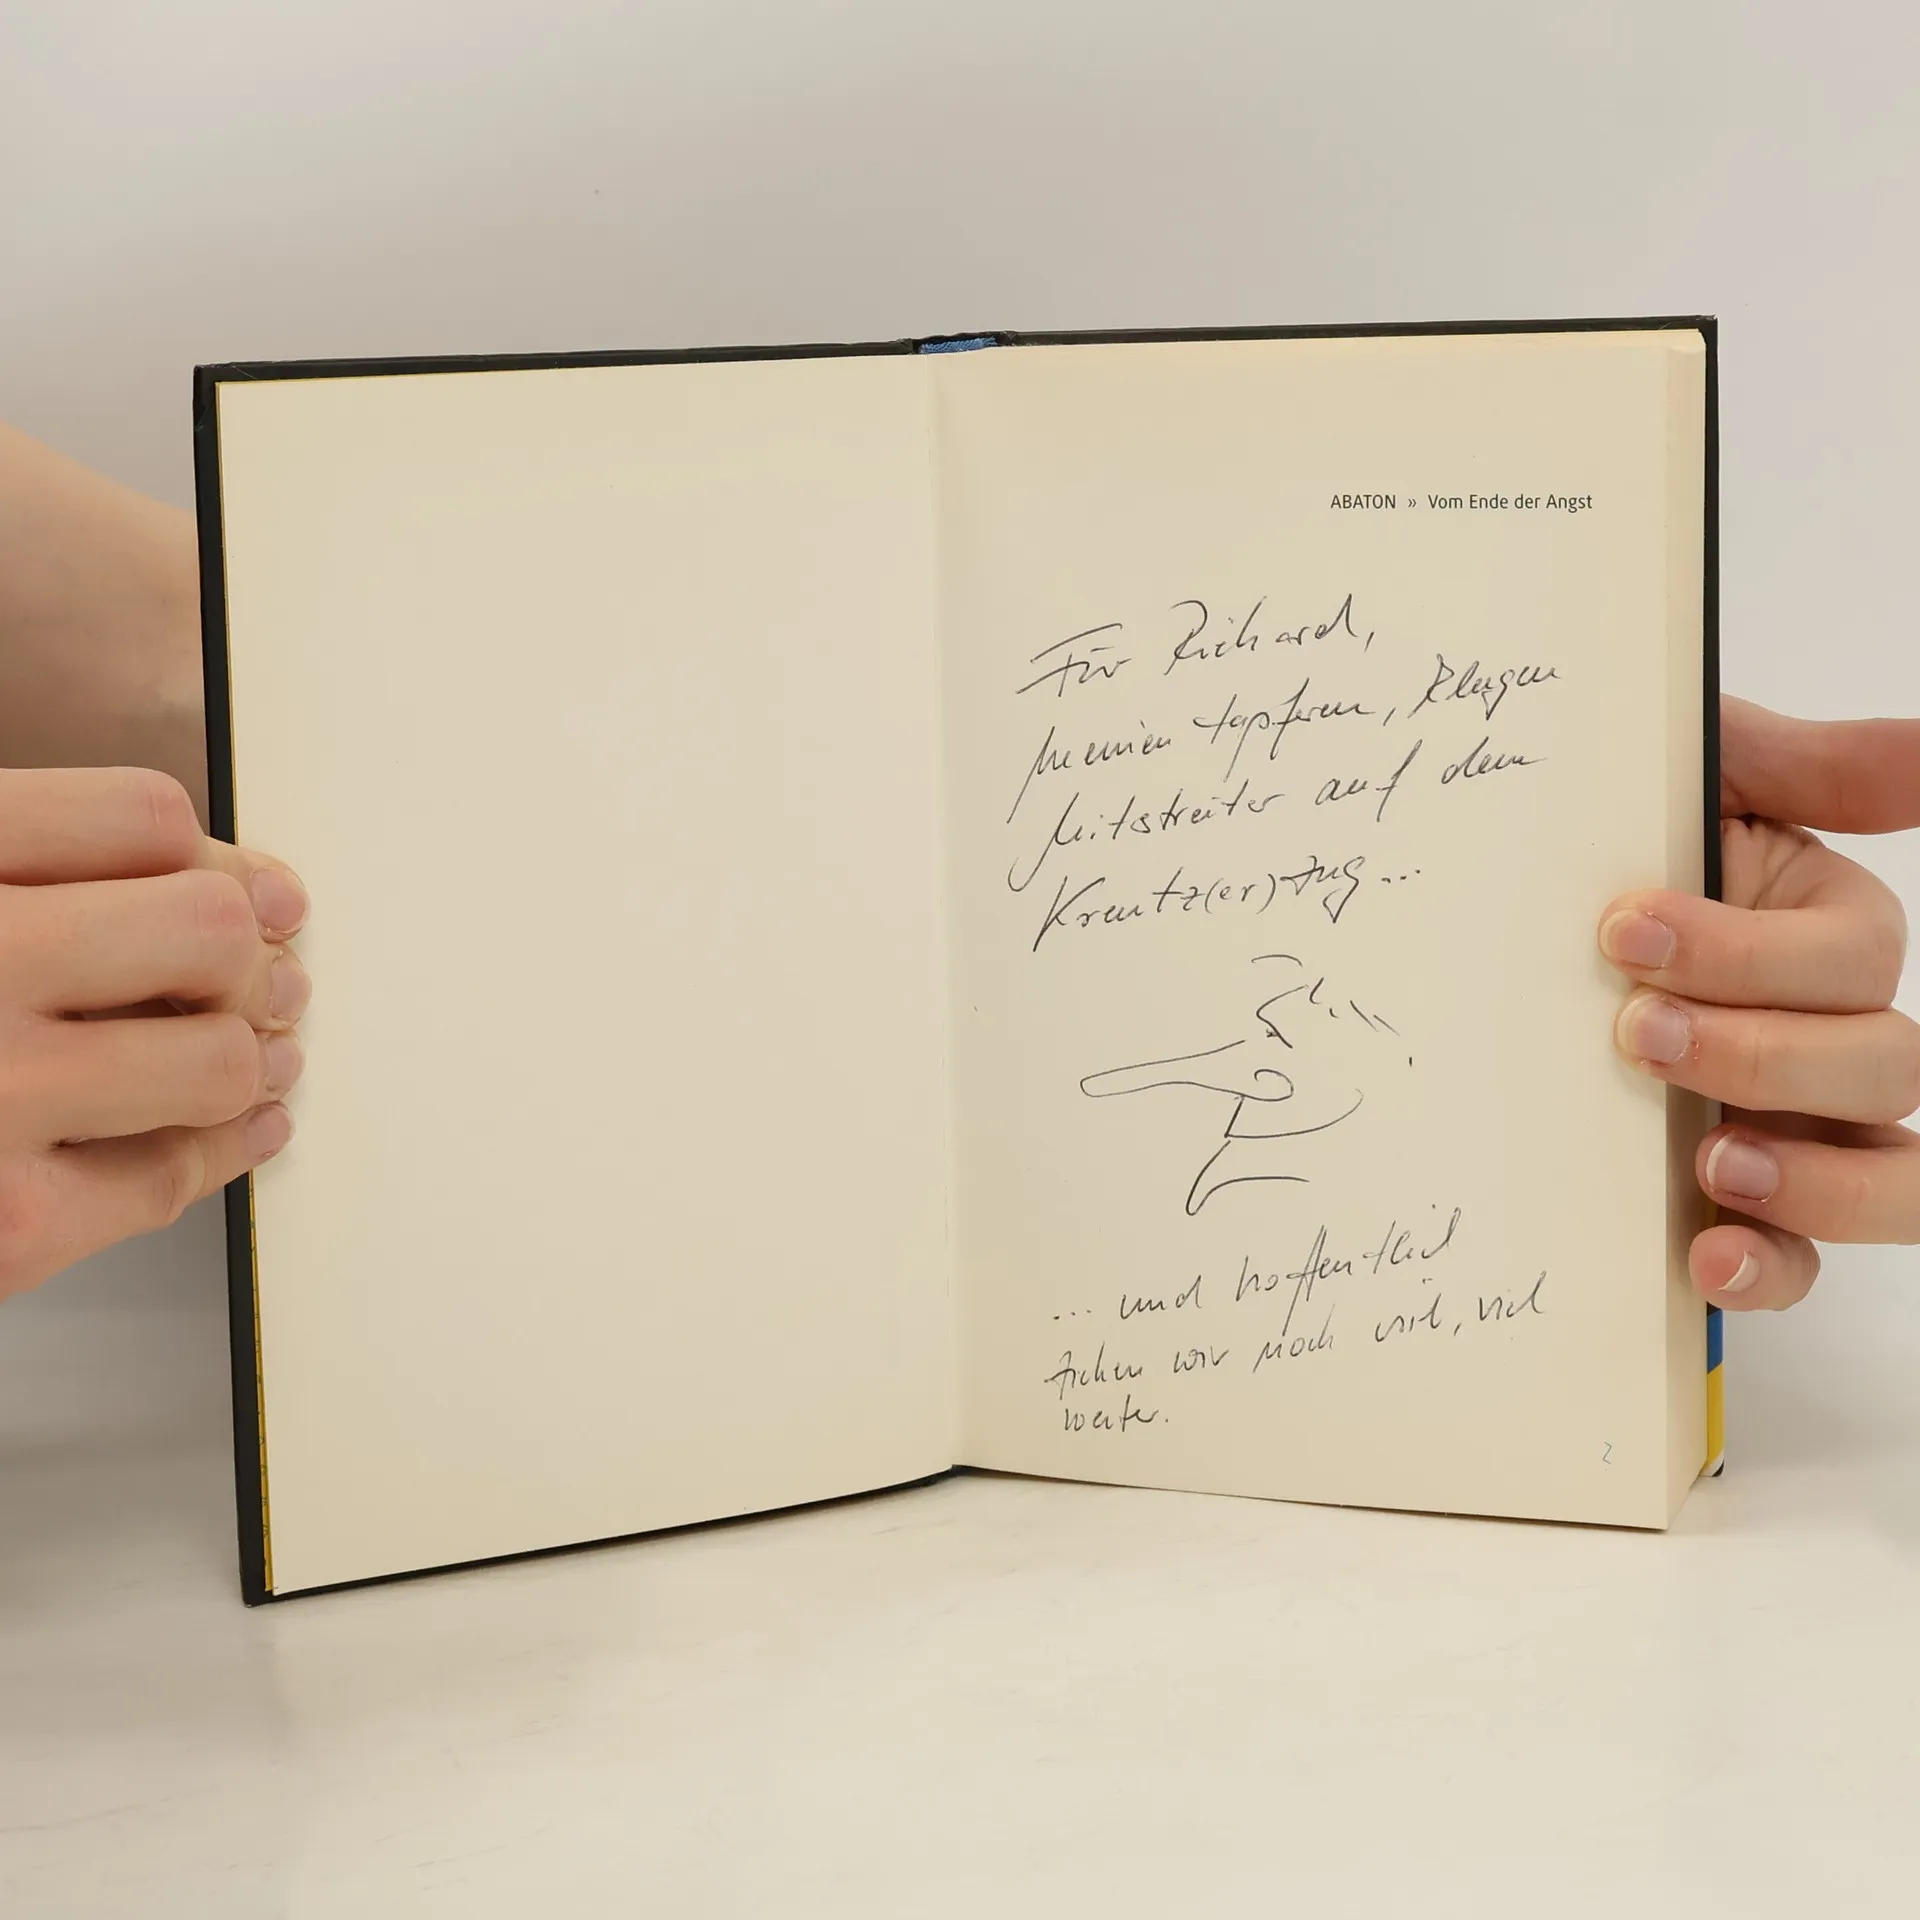 ABATON » Vom Ende der Angst
Für Richard,
meinen tapferen, klugen
Mitstreiter auf dem
Kreutz(er)zug...
... und hoffentlich
ziehen wir noch viel, viel
weiter.
2